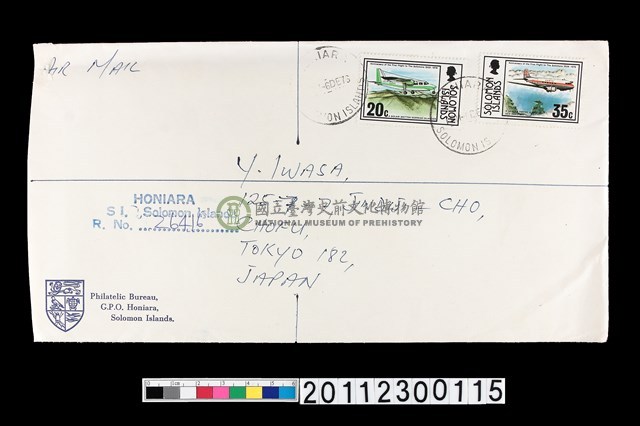 AIR MAIL
20c
SOLOMON ISLANDS
SOLOMON ISLANDS
35c
SOLOMON IS
Y. IWASA,
CHO,
CHOFU,
TOKYO 182,
JAPAN
HONIARA
S I. Solomon Islands
R. No. 26416
國立臺灣史前文化博物館
NATIONAL MUSEUM OF PREHISTORY
Philatelic Bureau,
G.P.O. Honiara,
Solomon Islands.
20112300115